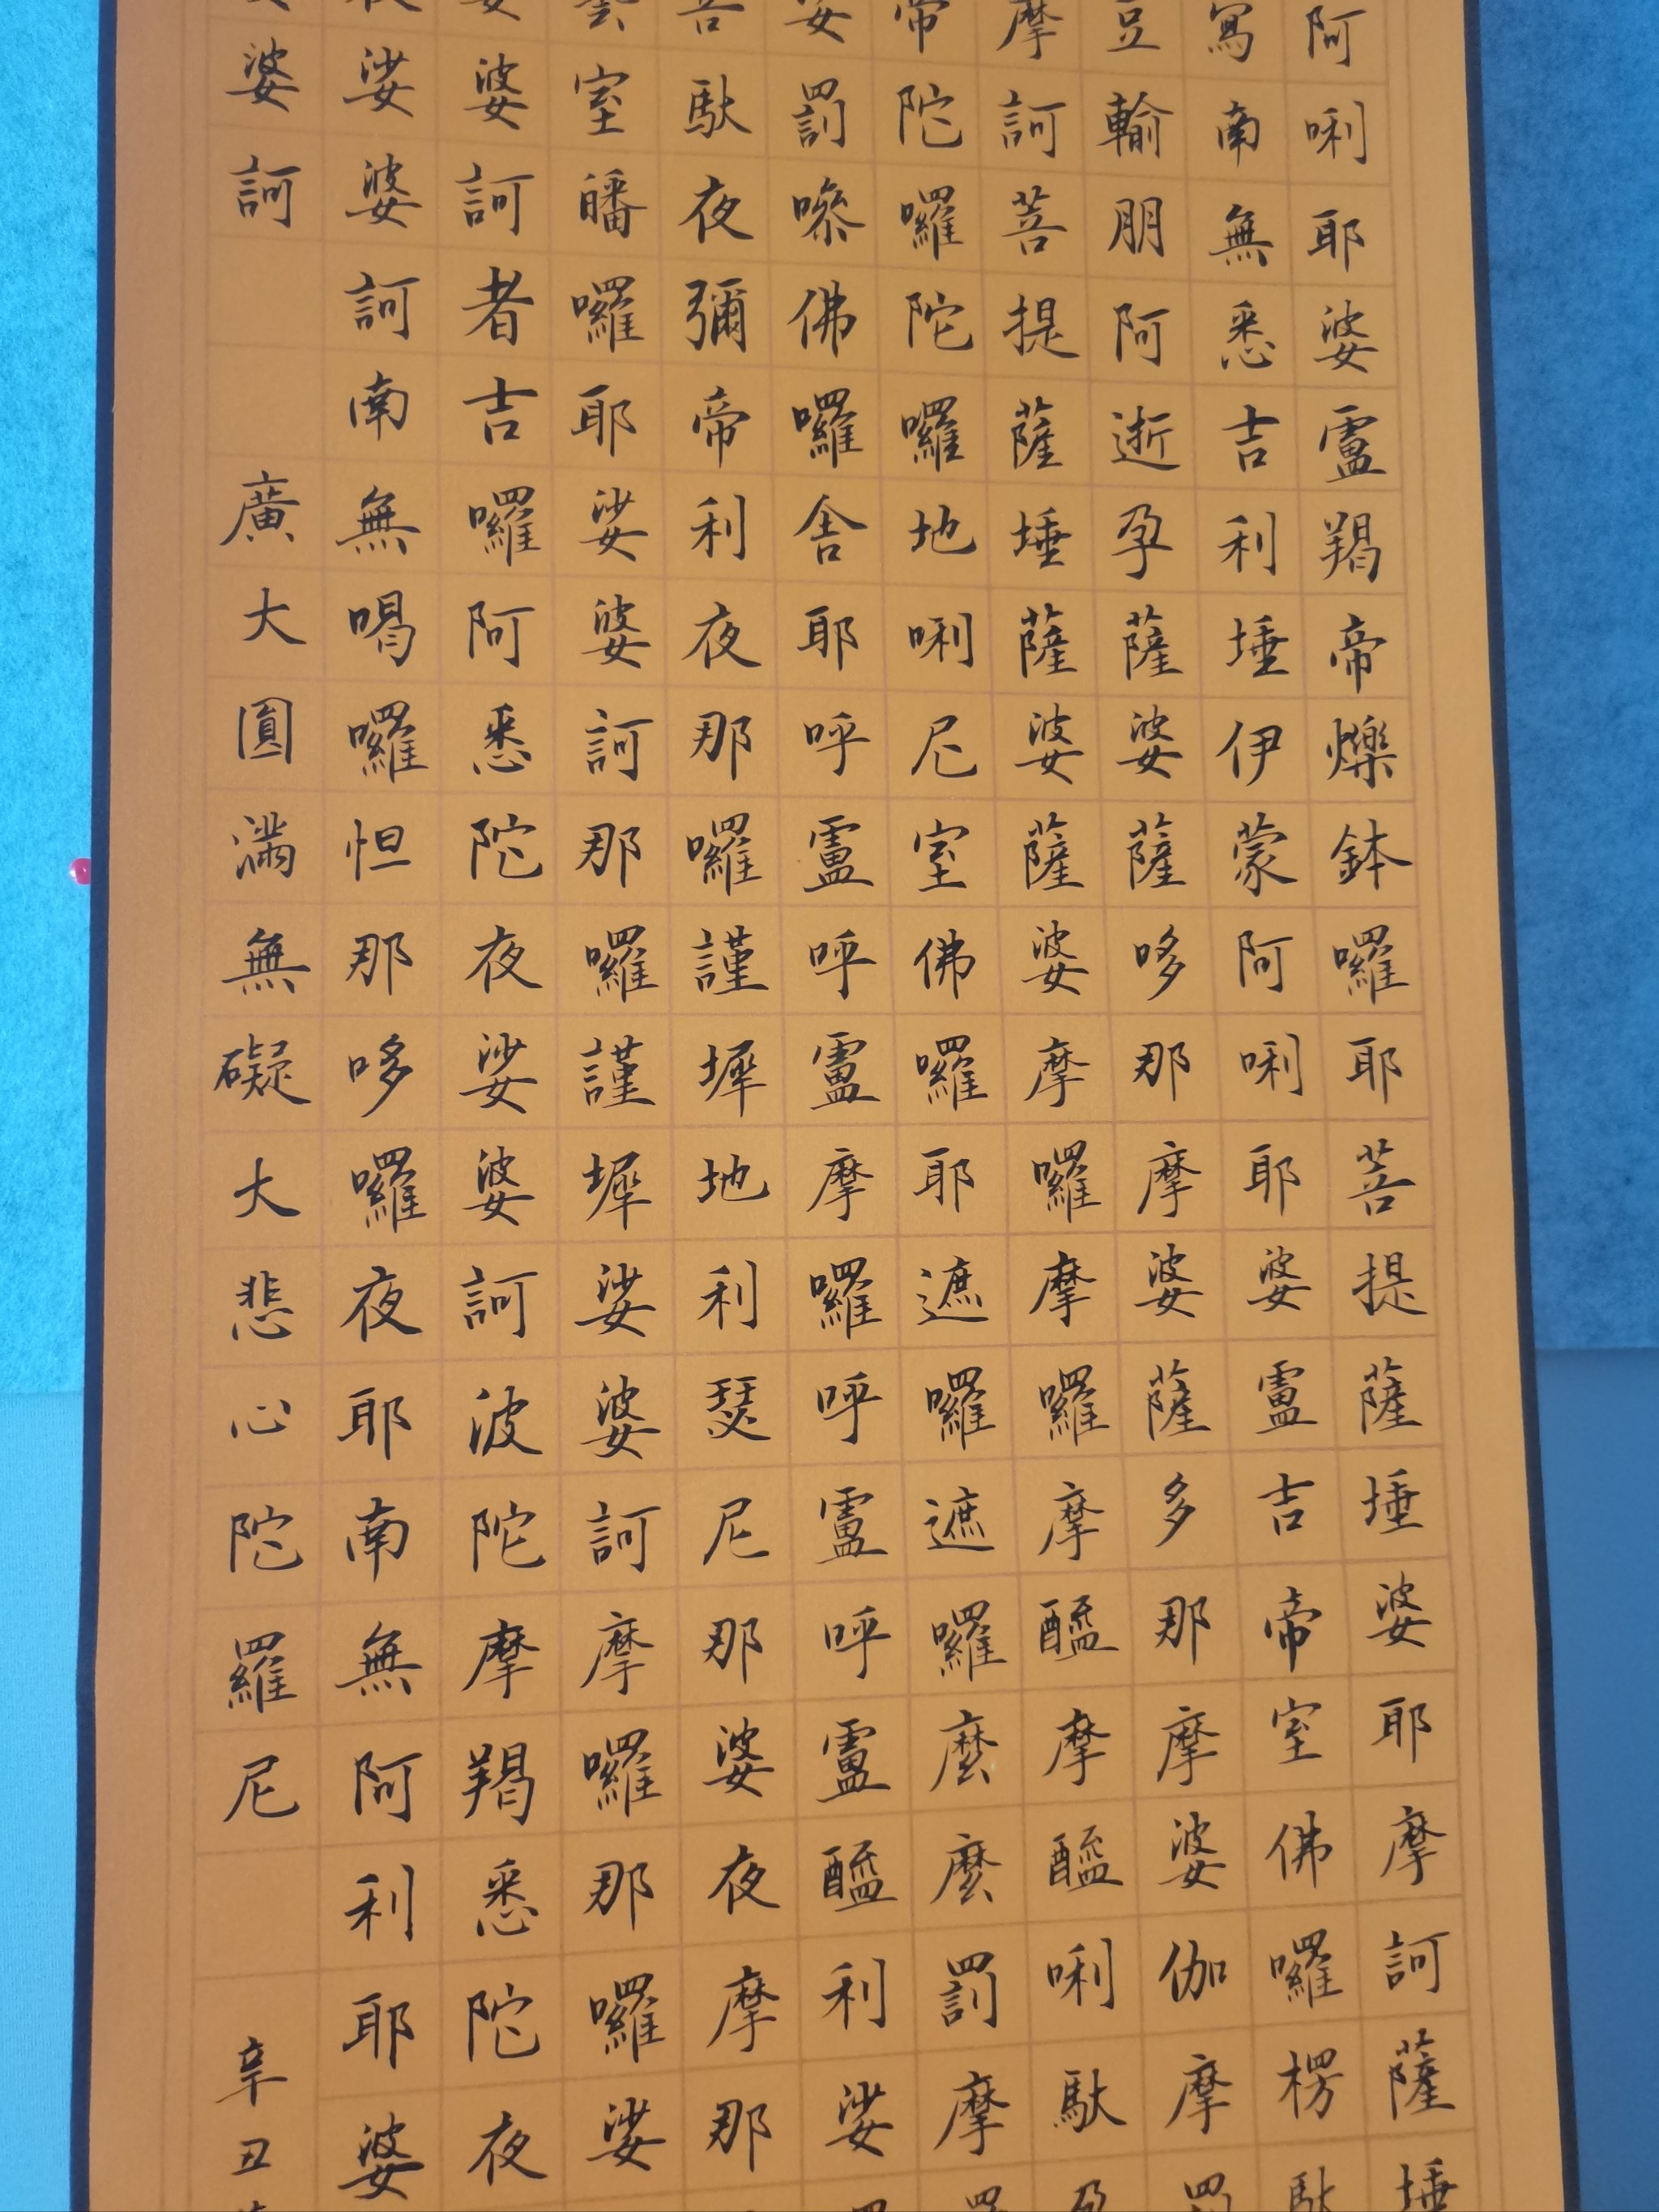 阿唎耶婆盧羯帝爍鉢囉耶菩提薩埵婆耶摩訶薩埵
寫南無悉吉利埵伊蒙阿唎耶婆盧吉帝室佛囉楞馱
豆輸朋阿逝孕薩婆薩哆那摩婆薩多那摩婆伽摩罰
摩訶菩提薩埵薩婆薩婆摩囉摩囉摩醯摩醯唎馱孕
帝陀囉陀囉地唎尼室佛囉耶遮囉遮囉麼麼罰摩囉
娑罰嘇佛囉舍耶呼盧呼盧摩囉呼盧呼盧醯利娑囉
菩馱夜彌帝利夜那囉謹墀地利瑟尼那婆夜摩那
藝室皤囉耶娑婆訶那囉謹墀娑婆訶摩囉那囉娑
娑婆訶者吉囉阿悉陀夜娑婆訶波陀摩羯悉陀夜
夜娑婆訶南無喝囉怛那哆囉夜耶南無阿利耶婆
婆訶
廣大圓滿無礙大悲心陀羅尼
辛丑